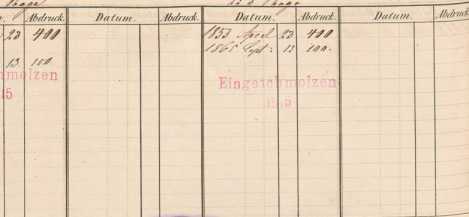 Abdruck. Datum. Abdruck. Datum. Abdruck. Datum. Abdruck.
23 400 1853 April 23 400
13 100 1865 Sept. 13 100.
molzen Eingeschmolzen